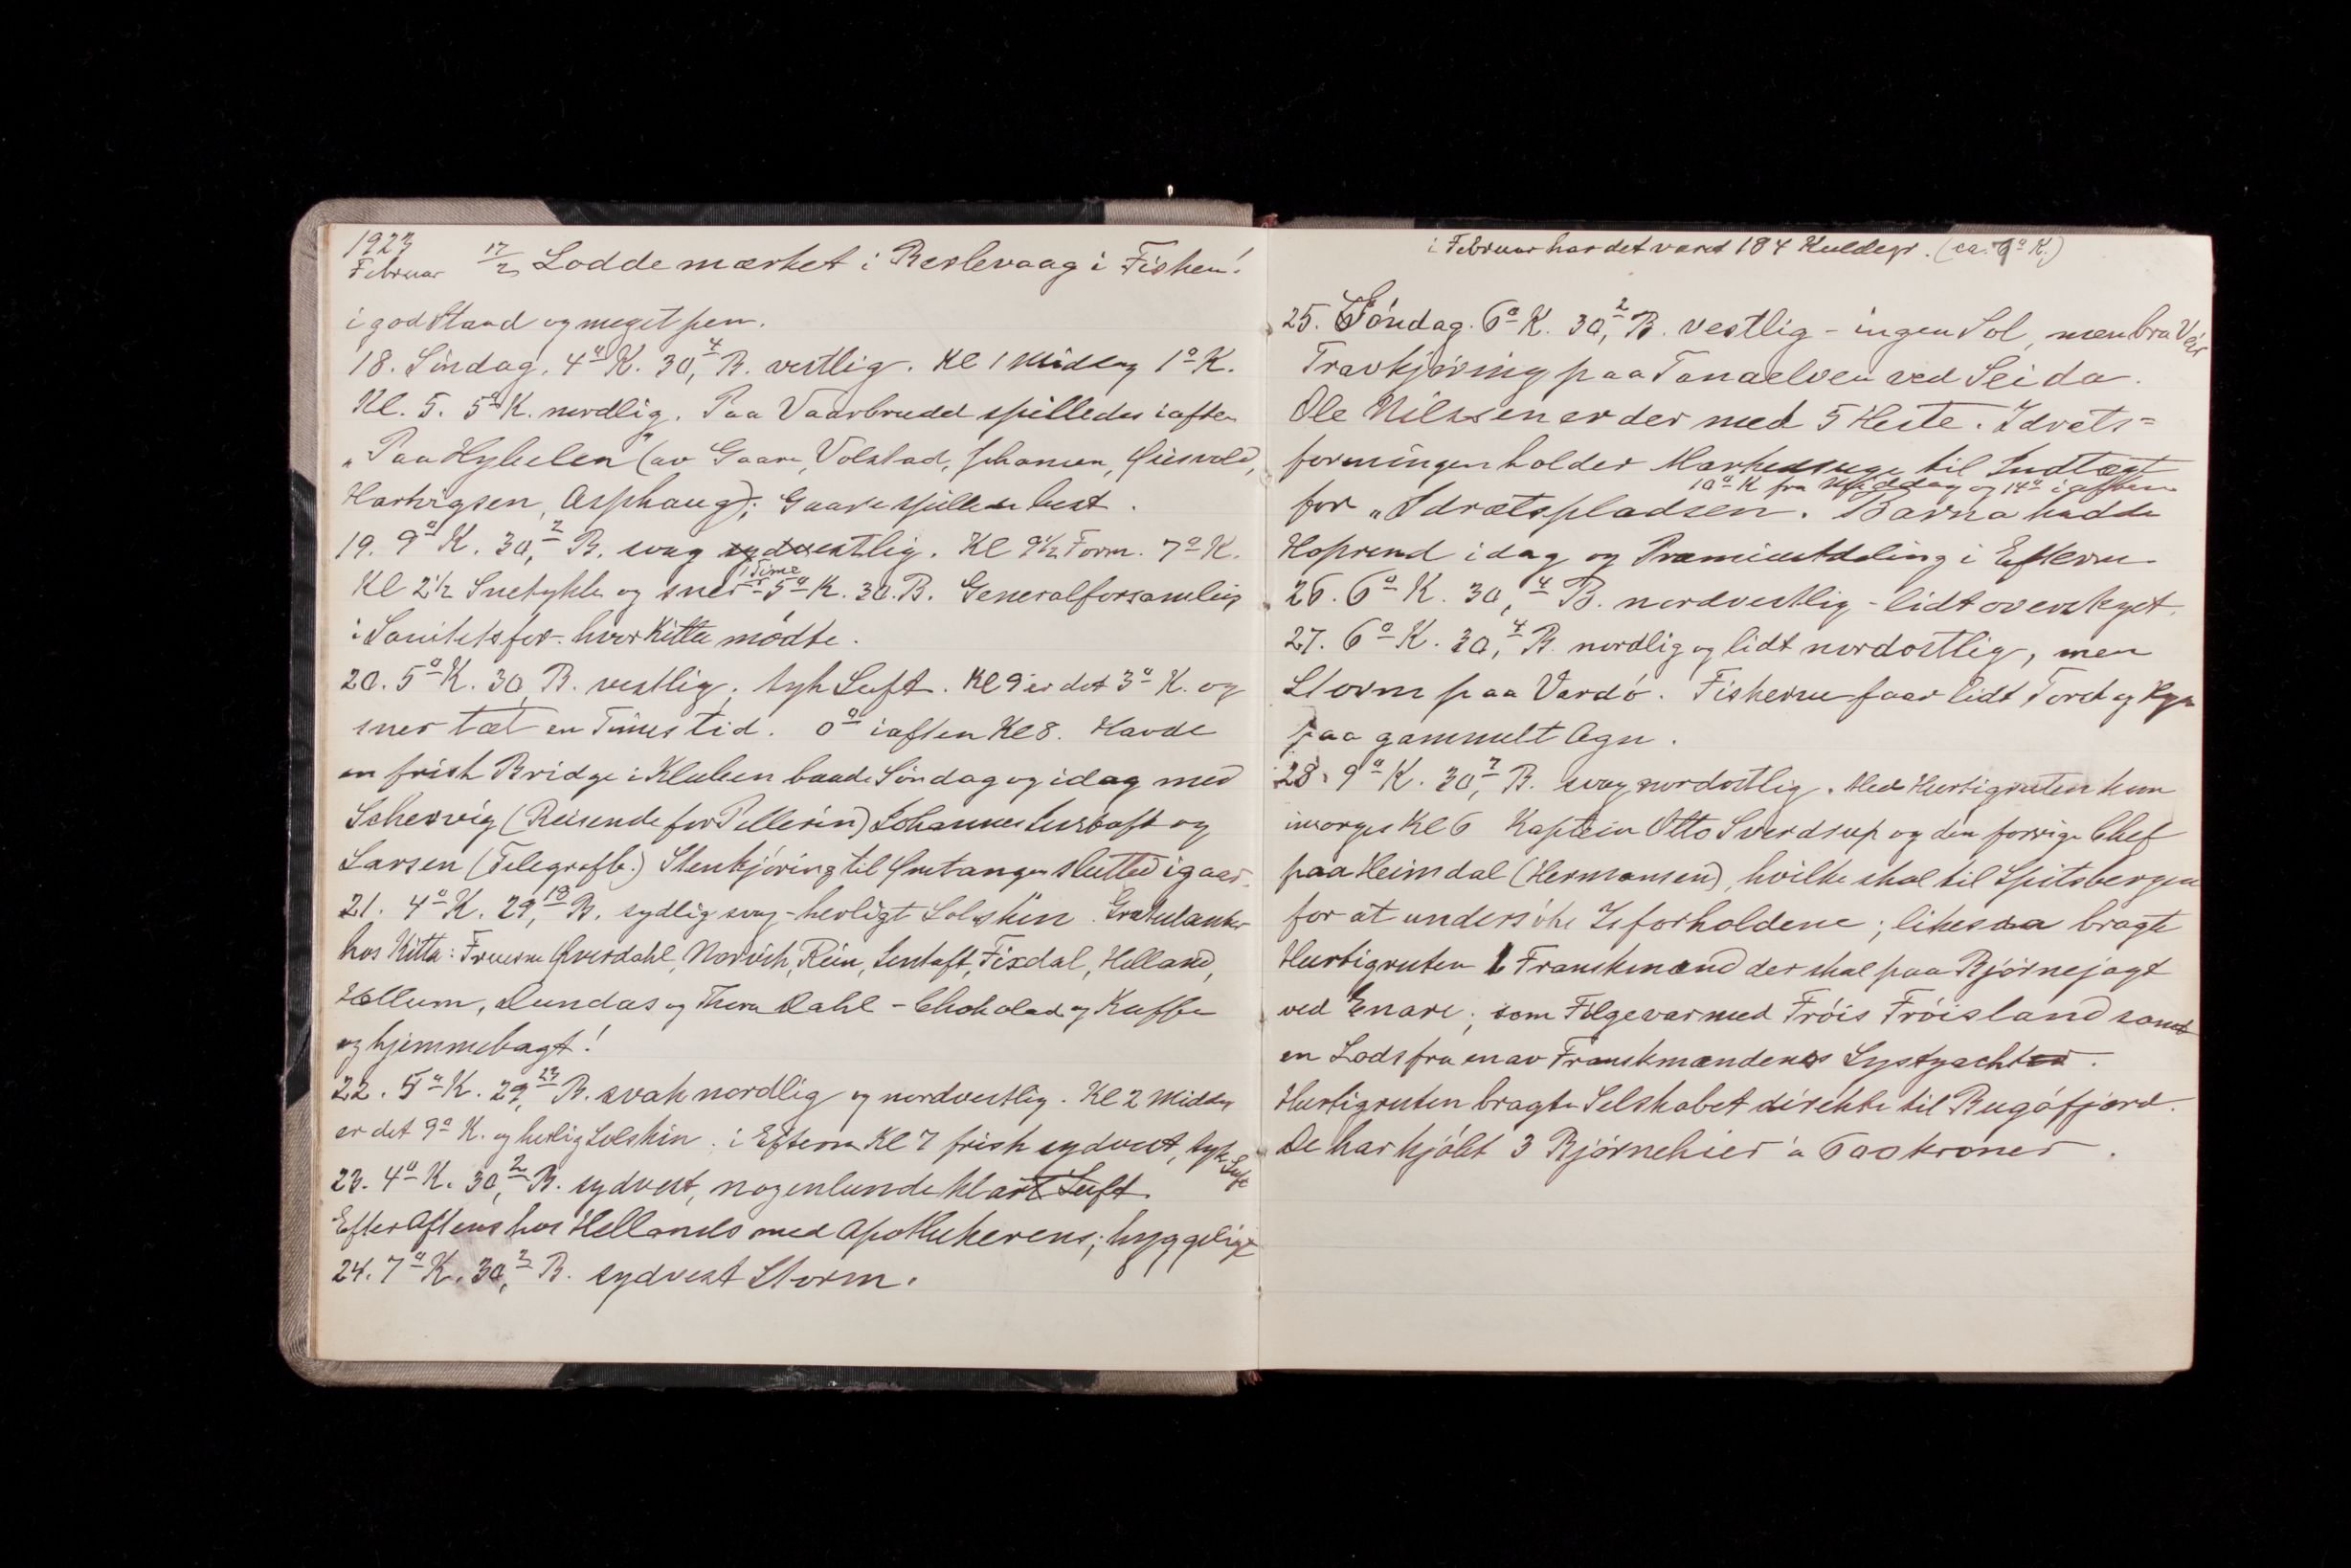 1923
Februar 17/2 Lodde mærket i Berlevaag i Fisken!
i god Stand og meget pen.
18. Söndag. 4° K. 30,4 B. vestlig. Kl 1 Middag 1° K.
Kl. 5. 5° K. nordlig. Paa Vaarbrudd spilledes iaften
„Paa Hybelen" (av Gaare, Volstad, Johansen,
Hartvigsen, Asphaug); Gaare spillede best.
19. 9° K. 30,2 B. svag sydvestlig. Kl 9½ Form. 7° K.
Kl 2½ Snetykke og sner 1 Time - 5° K. 30. B. Generalforsamling
i Sanitetsfor. hvor Kitta mödte.
20. 5° K. 30, B. vestlig, tyk Luft. Kl 9 er det 3° K. og
sner tæt en Times tid. 0° iaften Kl 8. Havde
en frisk Bridge i Klubben baade Söndag og idag med
Schervig (Reisende for Pellerin) Johannes og
Larsen (Telegrafb.) Stenkjöring til slutted igaar.
21. 4° K. 29,18 B. sydlig svag - herligt Solskin. Gratulanter
hos Kitta: Fruerne Qversdahl, Norvich, Rein, Fixdal, Helland,
Hellum, Dundas og Thora Dahl - Chokolad og Kaffe
og hjemmebagt!
22. 5° K. 29,23 B. svak nordlig og nordvestlig. Kl 2 Middag
er det 9° K. og herlig Solskin. i Efterm Kl 7 frisk sydvest, tyk Luft
23. 4° K. 30,2 B. sydvest, nogenlunde klart Luft.
Efter Aftens hos Hellands med Apothekerens; hyggeligt
24. 7° K. 30,3 B. sydvest Storm.
i Februar har det været 184 Kuldegr. (ca. 7° K.)
25. Söndag. 6° K. 30,2 B. vestlig - ingen Sol, men bra Veir
Travkjöring paa Tanaelven ved Seida.
Ole Nilssen er der med 5 Heste. Idræts=
foreningen holder Markedsuge til Indtægt
10° K fra Middag og 14° iaften
for „Idrætspladsen. Barna hadde
Hoprend idag og Præmieutdeling i Efterm.
26. 6° K. 30,4 B. nordvestlig - lidt overskyet.
27. 6° K. 30,4 B. nordlig og lidt nordostlig, men
Storm paa Vardö. Fiskerne faar lidt Torsk og Hyse
paa gammelt Agn.
28. 9° K. 30,7 B. svag nordostlig. Med Hurtigruten kom
imorges Kl 6 Kaptein Otto Sverdrup og den forrige Chef
paa Heimdal (Hermansen), hvilke skal til Spitsbergen
for at undersöke Isforholdene; likesaa bragte
Hurtigruten 1 Franskmænd der skal paa Bjørnejagt
ved Enare; som Fölge var med Fröis Fröisland samt
en Lods fra en av Franskmændenes Lystyachter.
Hurtigruten bragte Selskabet direkte til Bugöfjord.
De har kjöbt 3 Bjørnehier à 600 kroner.